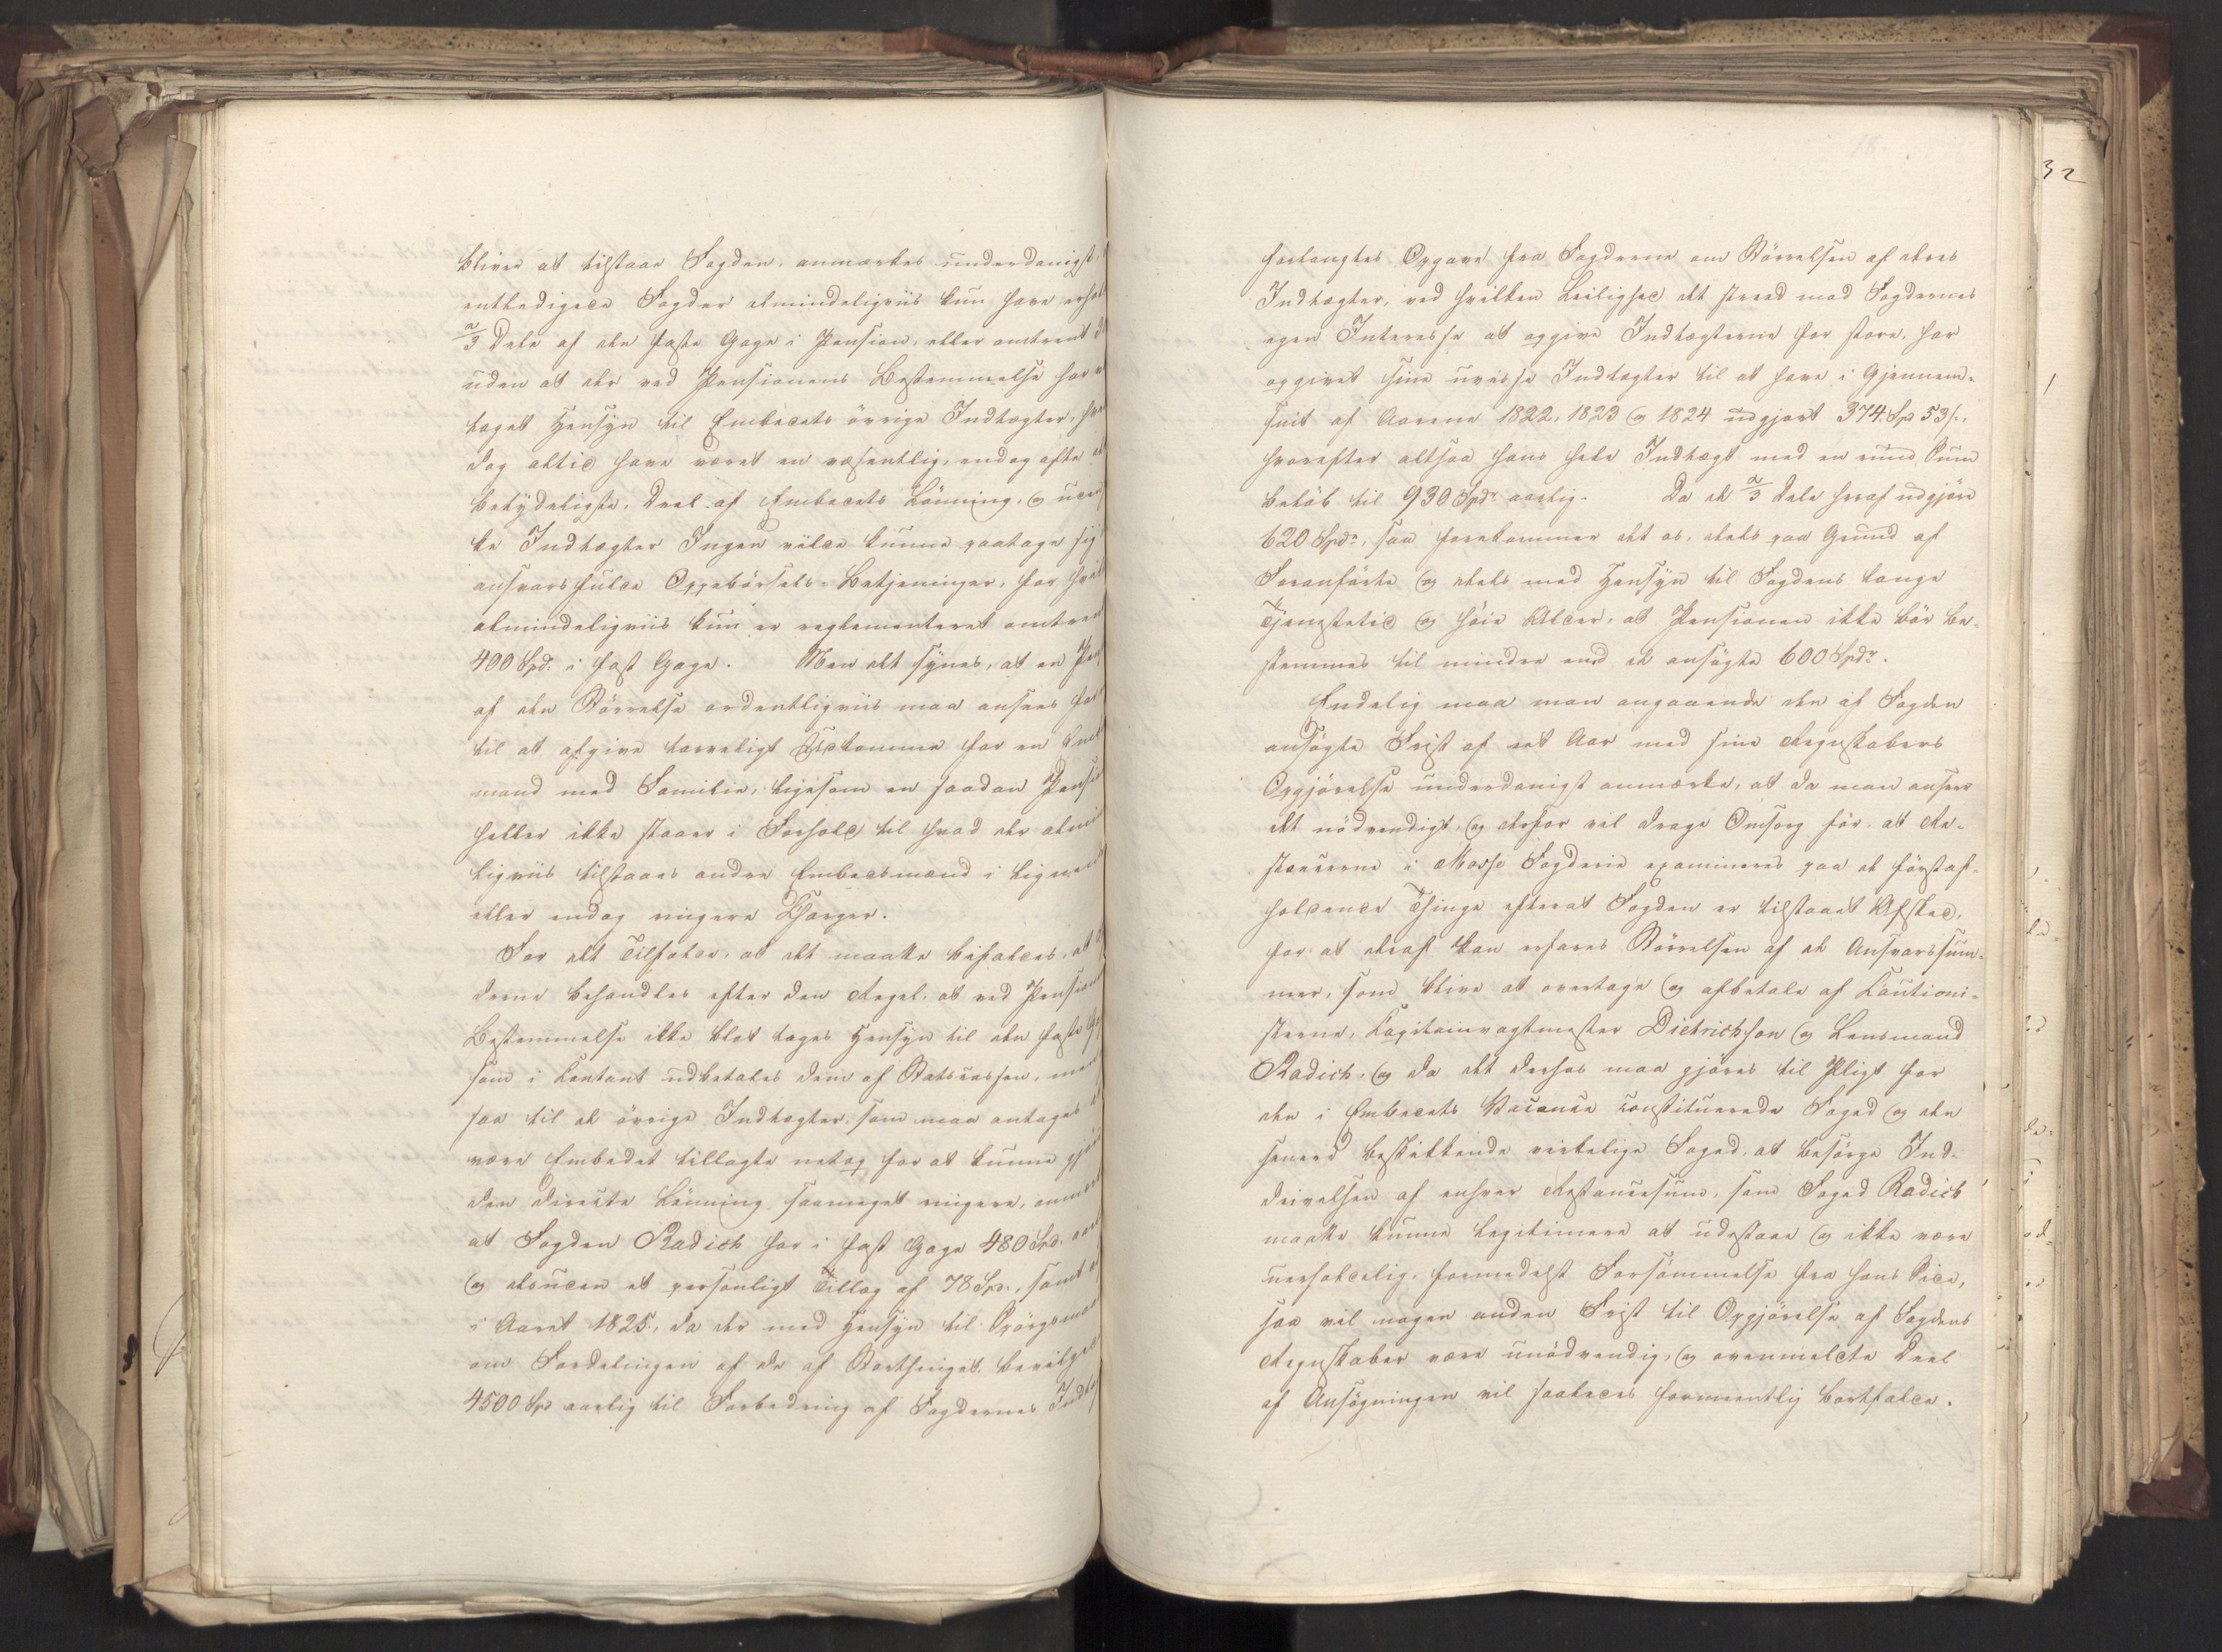 bliver at tilstaae Fogden, anmærkes underdanigst,
entledigede Fogder almindeligviis kun have erhol
2/3 Dele af den faste Gage i Pension, eller omtrent
uden at der ved Pensionens Bestemmelse har v
taget Hensyn til Embedets övrige Indtægter, hvo
dog altid have været en væsentlig, endog ofte
betydeligste, Deel af Embedets Lönning, og uden
ke Indtægter Ingen vilde kunne paatage sig
ansvarsfulde Oppebörsels-Betjeninger, for hvil
almindeligviis kun er reglementeret omtrent
400 Spd. i fast Gage. Men det synes, at en Pen
af den Störrelse ordentligviis maa ansees for
til at afgive tarveligt Udkomme for en Em
mand med Familie, ligesom en saadan Pensi
heller ikke staaer i Forhold til hvad der almi
ligviis tilstaaes andre Embedsmænd i lignen
eller endog ringere Charger.
For det Tilfælde, at det maatte befales, at
derne behandles efter den Regel, at ved Pension
Bestemmelse ikke blot tages Hensyn til den faste G
som i Contant udbetales dem af Statscassen, men
saa til de övrige Indtægter, som maa antages
være Embedet tillagte netop for at kunne gjöre
den directe Lönning saameget ringere, anmær
at Fogden Radich har i fast Gage 480 Spd. aar
og desuden et personligt Tillæg af 78 Spd., samt
i Aaret 1825, da der med Hensyn til Spörgsmaa
om Fordelingen af de af Storthinget bevilgede
4500 Spd aarlig til Forbedring af Fogdernes Indtæ
32
forlangtes Opgave fra Fogderne om Störrelsen af deres
Indtægter, ved hvilken Leilighed det stred mod Fogdernes
egen Interesse at opgive Indtægterne for store, har
opgivet sine uvisse Indtægter til at have i Gjennem-
snit af Aarene 1822, 1823 og 1824 udgjort 374 Spd 53 s.,
hvorefter altsaa hans hele Indtægt med en rund Sum
beløb til 930 Spdr aarlig. Da de 2/3 Dele heraf udgjöre
620 Spdr, saa forekommer det os, deels paa Grund af
Foranförte og deels med Hensyn til Fogdens lange
Tjenstetid og höie Alder, at Pensionen ikke bör be-
stemmes til mindre end de ansögte 600 Spdr.
Endelig maa man angaaende den af Fogden
ansögte Frist af eet Aar med sine Regnskabers
Opgjörelse underdanigst anmærke, at da man anseer
det nödvendigt, og derfor vil drage Omsorg for, at Re-
stancerne i Mosse Fogderie examineres paa de förstaf-
holdende Thinge efterat Fogden er tilstaaet Afsked,
for at deraf kan erfares Störrelsen af de Ansvarssum-
mer, som blive at overtage og afbetale af Cautioni-
sterne, Capitainvagtmester Dietrichson og Lensmand
Radich, og da det derhos maa gjöres til Pligt for
den i Embedets Vacance constituerede Foged og den
senere beskikkende virkelige Foged, at besörge Ind-
drivelsen af enhver Restancesum, som Foged Radich
maatte kunne legitimere at udestaae og ikke være
uerholdelig, formedelst Forsömmelse fra hans Side,
saa vil nogen anden Frist til Opgjörelse af Fogdens
Regnskaber være unödvendig, og ovenmeldte Deel
af Ansögningen vil saaledes formeentlig bortfalde.